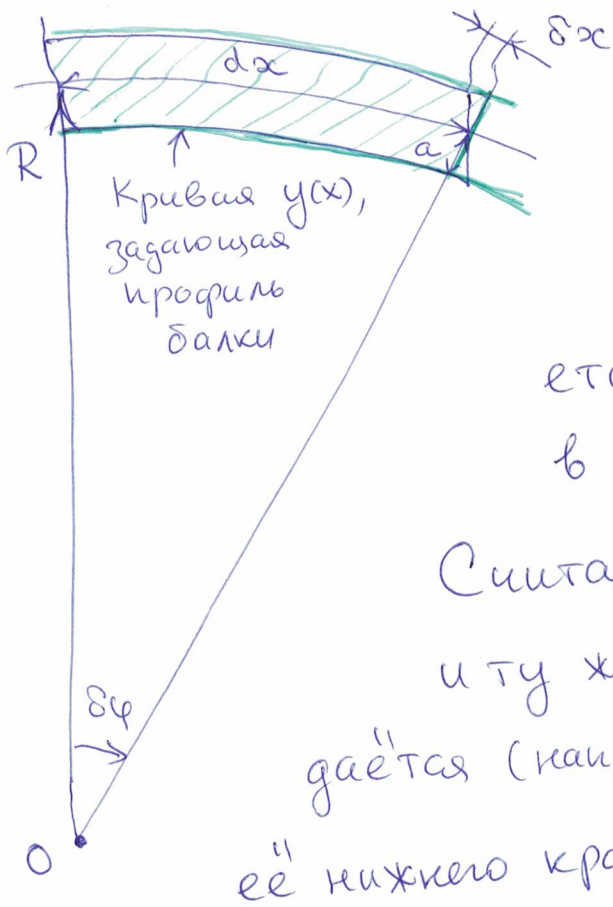 δx
dx
a
R
Кривая y(x),
задающая
профиль
балки
ето
в
Счита
и ту ж
δφ
даётся (нап
O
её нижнего кра